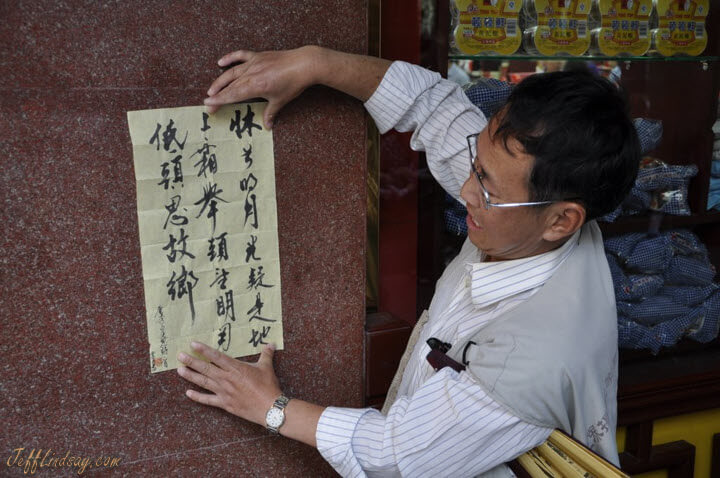 牀前明月光疑是地
上霜举頭望明月
低頭思故鄉
JeffLindsay.com